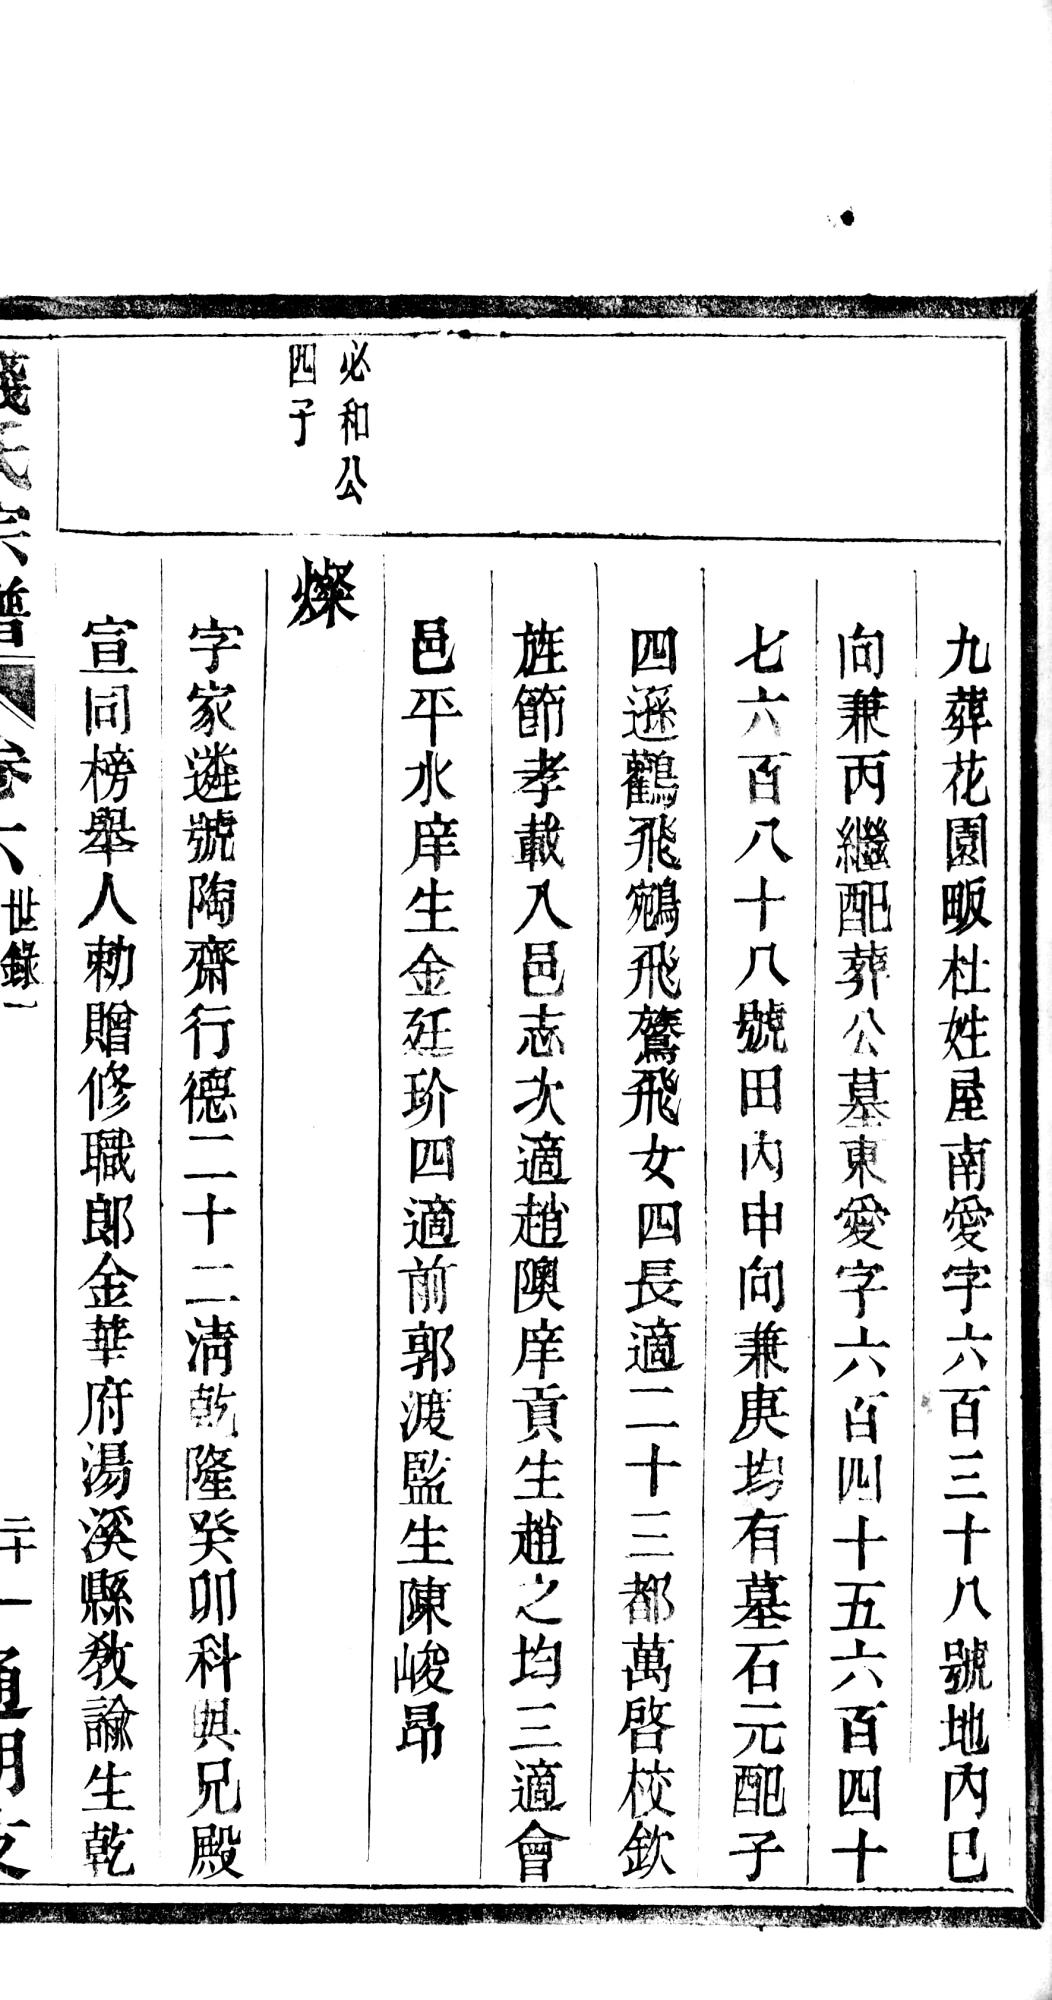 九葬花園畈杜姓屋南愛字六百三十八號地內巳
向兼丙繼配葬公墓東愛字六百四十五六百四十
七六百八十八號田內申向兼庚均有墓石元配子
四遜鸛飛鵷飛鶩飛女四長適二十三都萬啓校欽
旌節孝載入邑志次適趙隩庠貢生趙之均三適會
邑平水庠生金廷玠四適前郭渡監生陳峻昂
必和公
四子
燦
字家遴號陶齋行德二十二淸乾隆癸卯科與兄殿
宣同榜舉人勅贈修職郎金華府湯溪縣教諭生乾
氏宗譜 卷六 世錄一 二十一 通明支